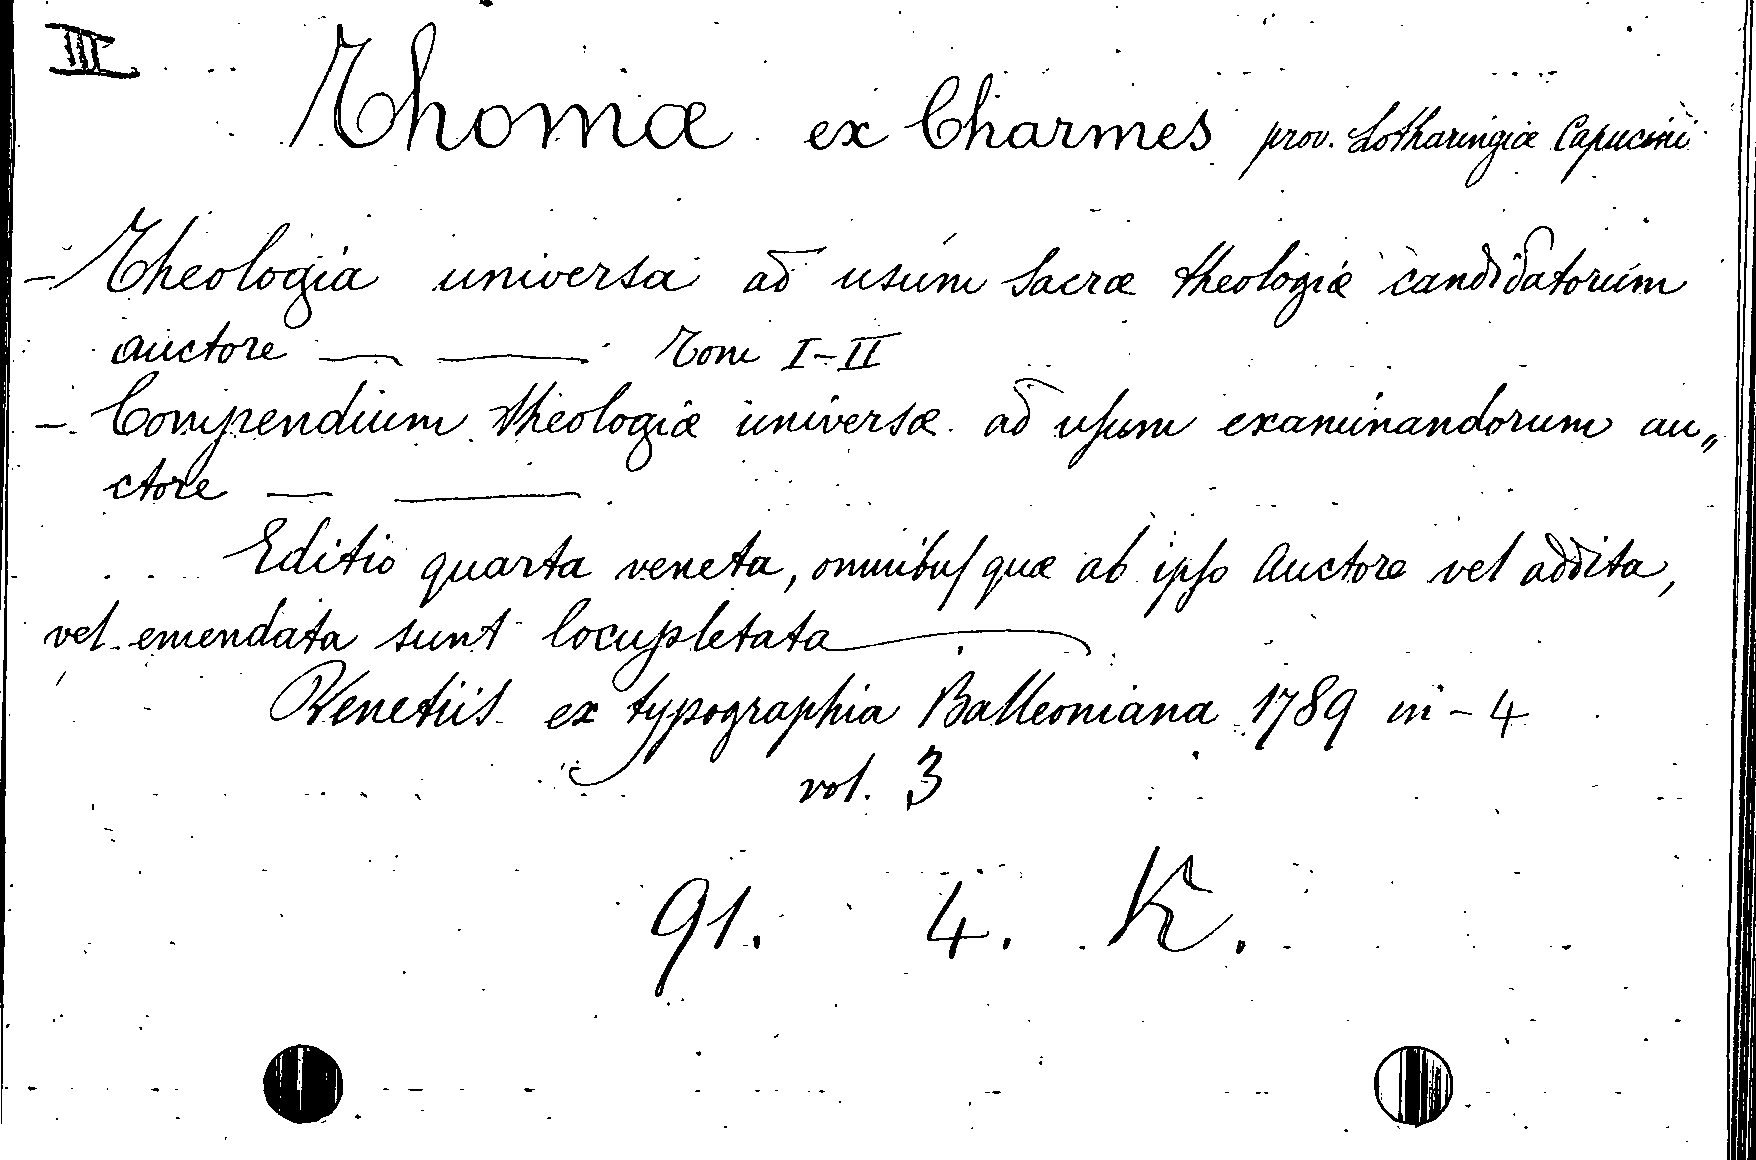 III
Thomæ ex Charmes prov. Lotharingiæ Capucini
– Theologia universa ad usum Sacræ theologiæ candidatorum
auctore — —— Tom I–II
– Compendium theologiæ universæ ad uſum examinandorum au„
ctore — ——
Editio quarta veneta, omnibuſ quæ ab ipſo Auctore vel addita,
vel emendata sunt locupletata ——
Venetiis ex typographia Balleoniana 1789 in – 4
vol. 3
91. 4. K.